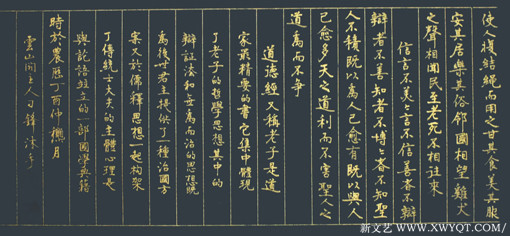 使人復結繩而用之甘其食美其服
安其居樂其俗鄰國相望雞犬
之聲相聞民至老死不相往來
信言不美美言不信善者不辯
辯者不善知者不博博者不知聖
人不積既以為人己愈有既以與人
己愈多天之道利而不害聖人之
道為而不爭
道德經又稱老子是道
家最精要的書它集中體現
了老子的哲學思想其中的
辯証法和無為而治的思想既
為後世君主提供了一種治國方
案又於佛釋思想一起構架
了傳統士大夫的主體心理是
與論語並立的一部國學典籍
時於農歷丁酉仲
月
雲山閒人
沐手
新文艺 WWW.XWYQT.COM